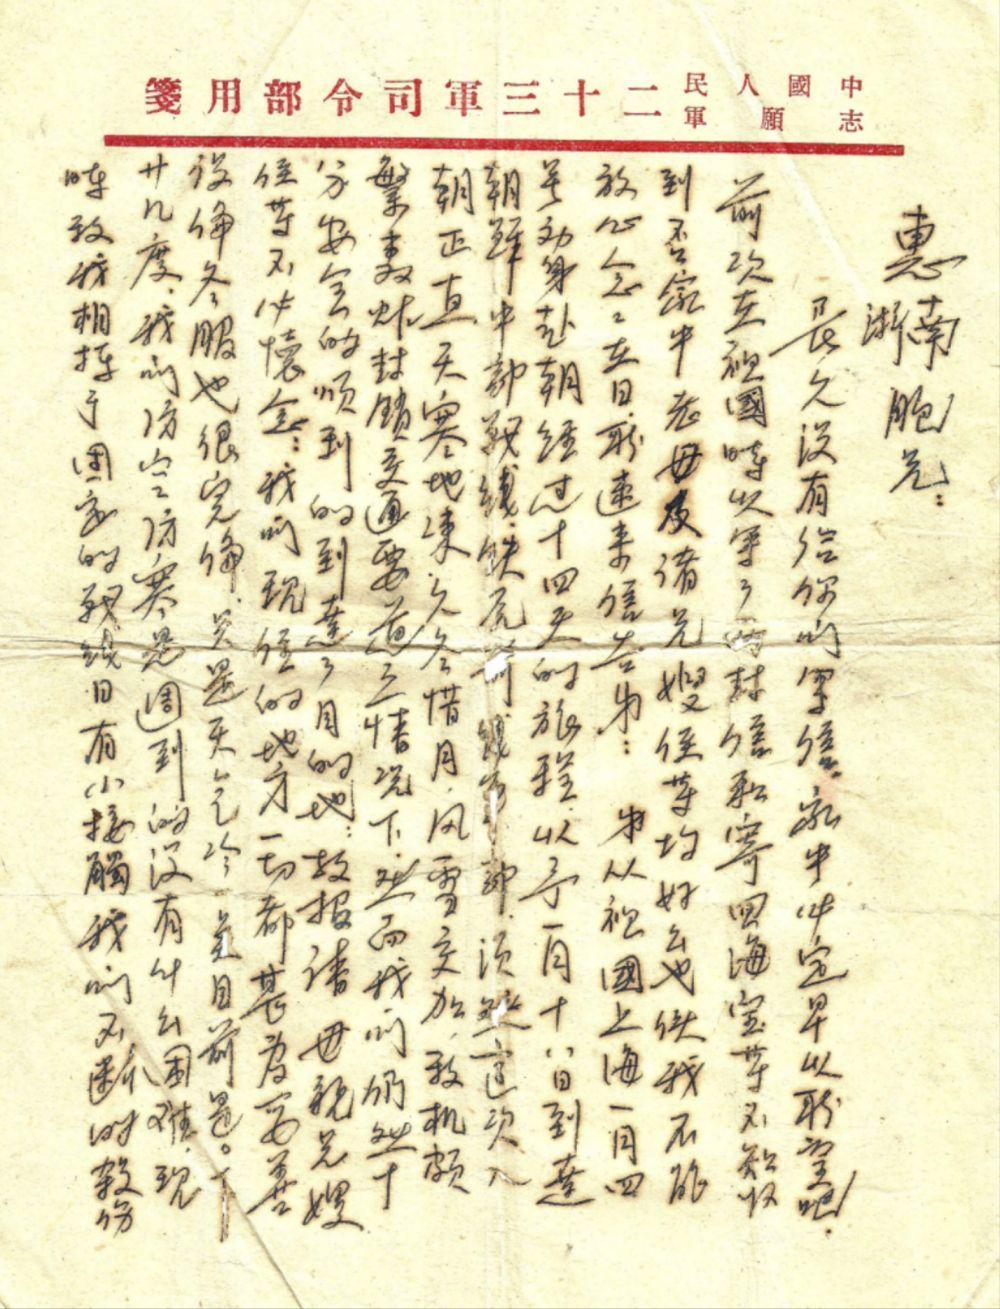 中國人民志願軍二十三軍司令部用箋
惠南
浙南胞兄：
長久没有给你们写信，家中也定早以盼望吧！
前次在祖國時以写了两封信和寄回海宝等不知收
到否家中老母及诸兄嫂侄等均好么也使我不能
放心念念在日盼速来信告弟： 弟从祖國上海一月四
号动身赴朝经过十四天的旅程，以于一月十八日到達
朝鲜中部战线铁原前线 部，须然這次入
朝正直天寒地凍久冬惜月，风雪交加，敌机頻
繁轰炸封鎖交通要道之情况下，然而我们仍然十
分安全的顺到的到達了目的地：敬报请母親兄嫂
侄等不必懷念：我们現住的地方一切都甚为妥善
设備冬服也很完備，只是天气冷，光目前是0下
廿几度，我们防空防寒是週到的没有什么困难，現
時敌我相持于固定的戰线日有小接觸我们不断的殺伤